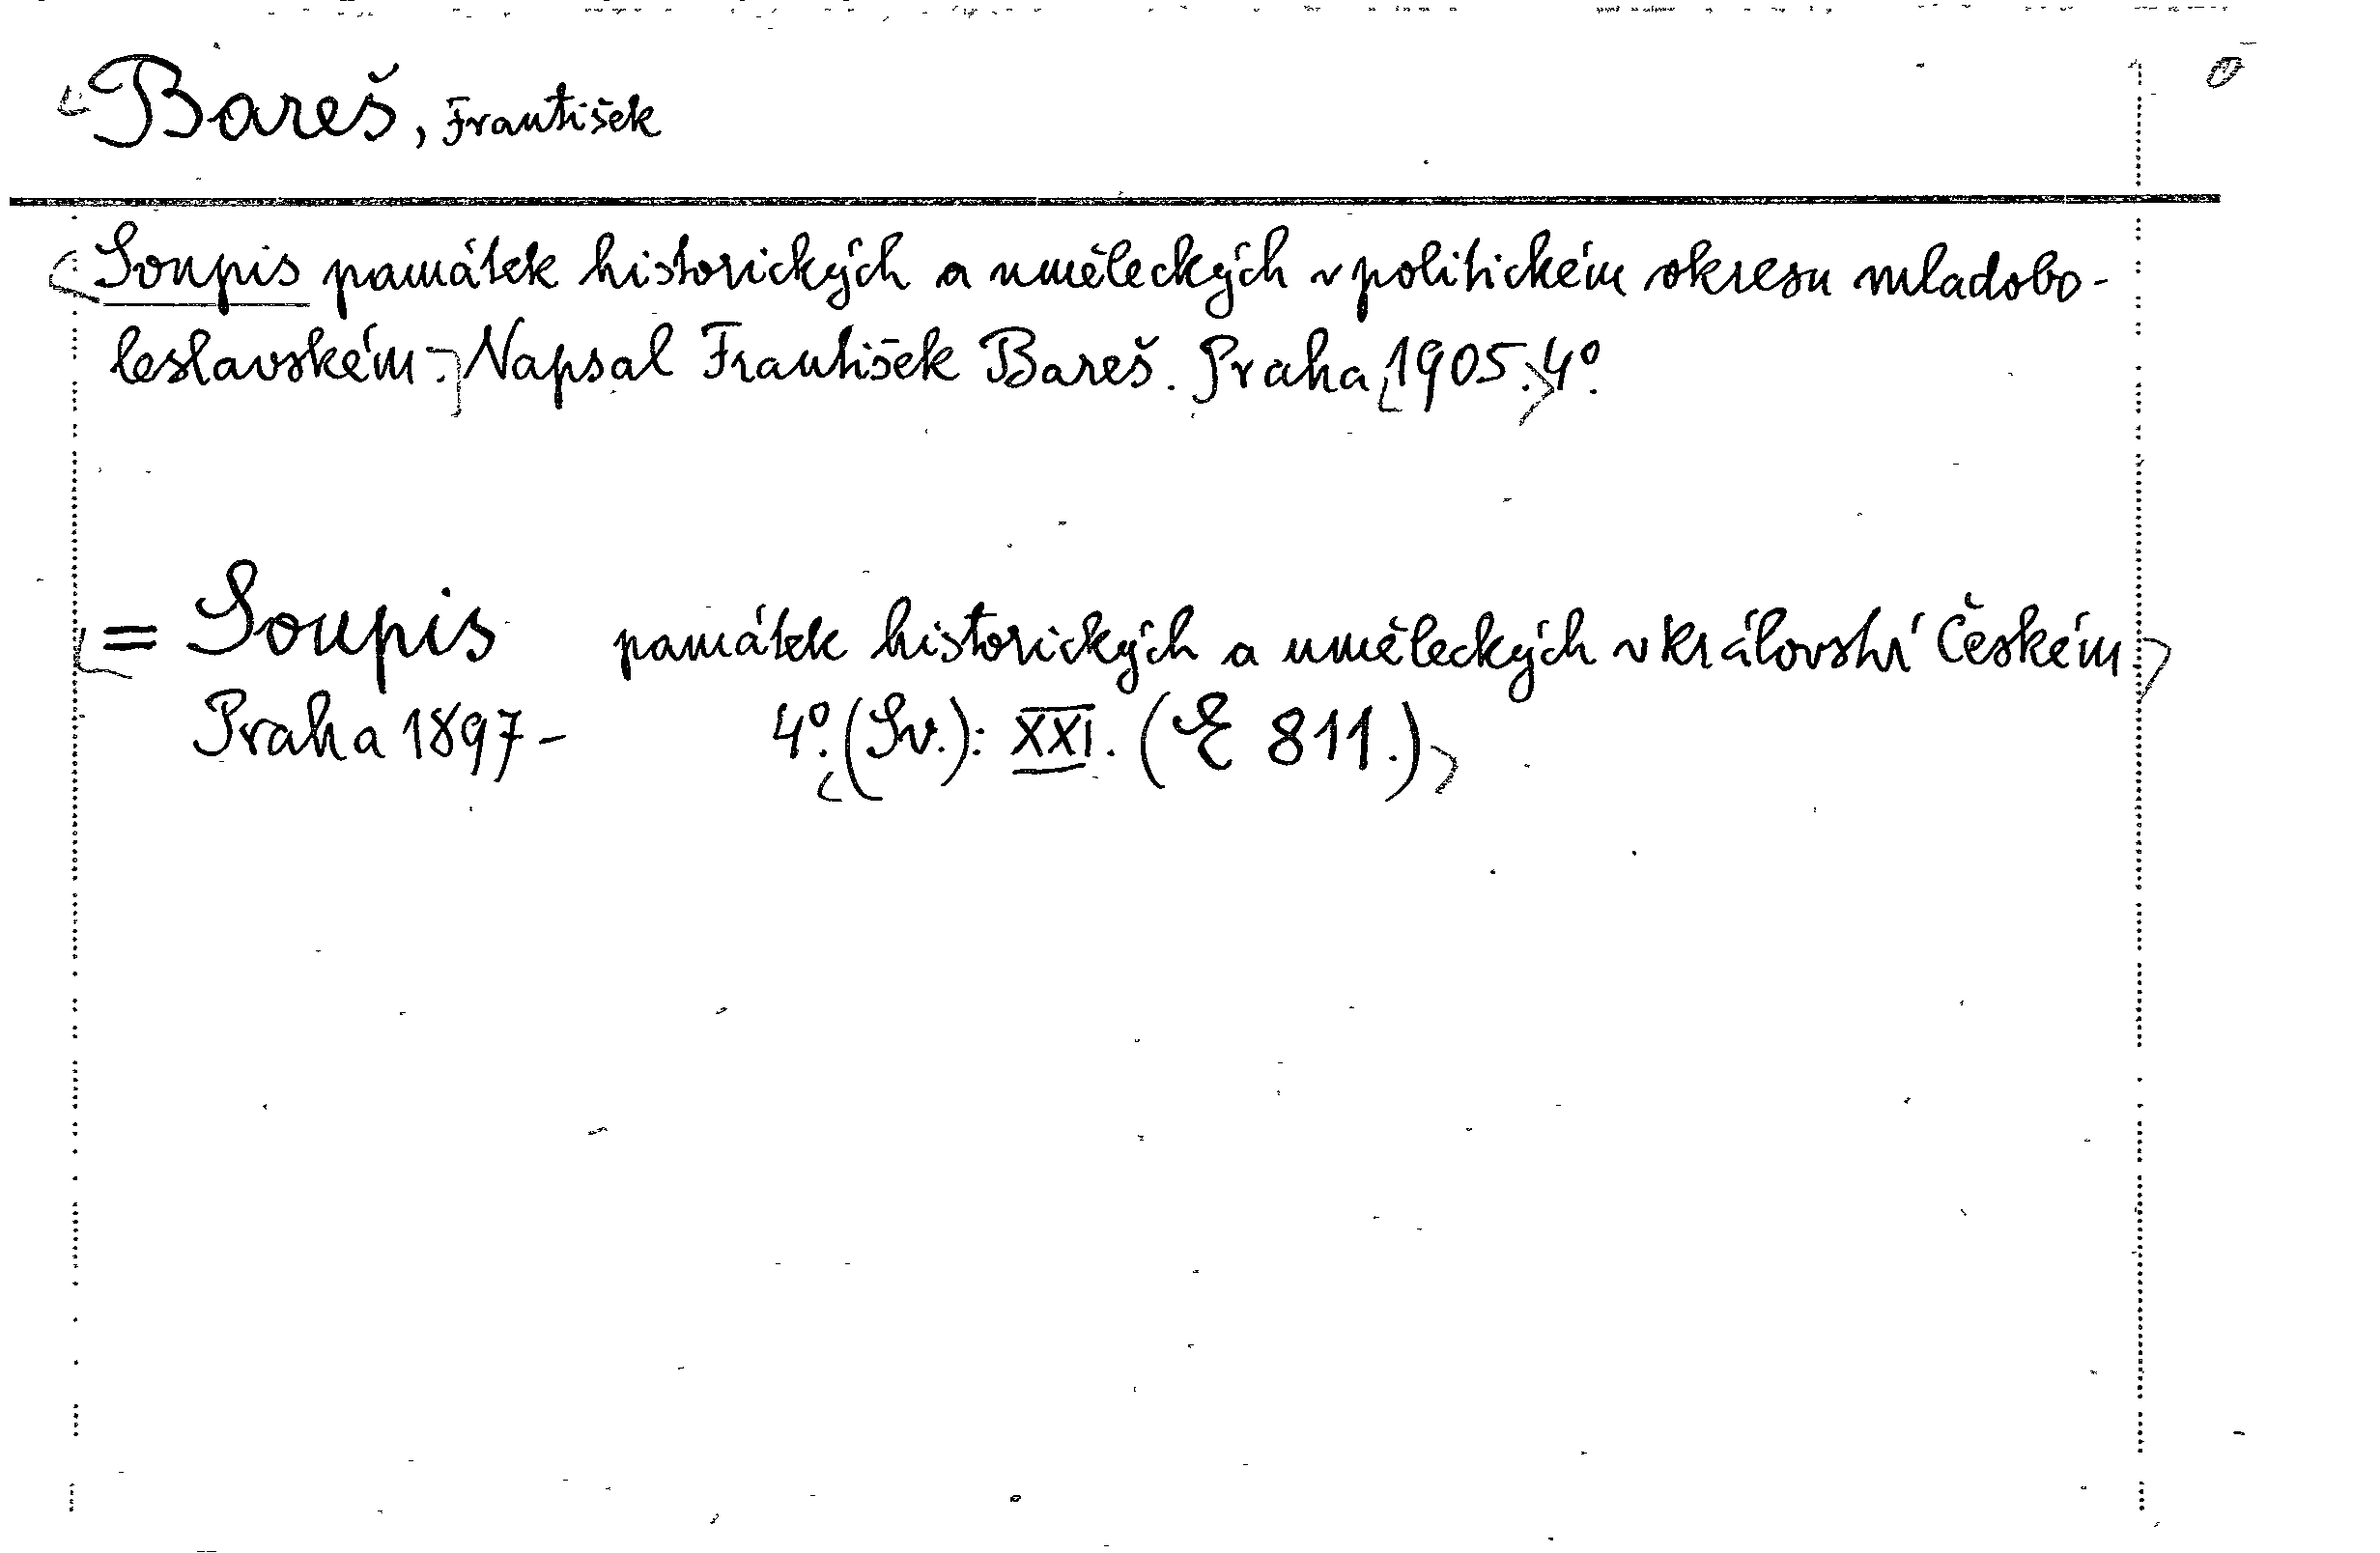 Bareš, František
Soupis památek historických a uměleckých v politickém okresu mladobo-
leslavském. Napsal František Bareš. Praha 1905. 4º.
= Soupis památek historických a uměleckých v království Českém.
Praha 1897- 4º. (Sv.): XXI. (E 811.)